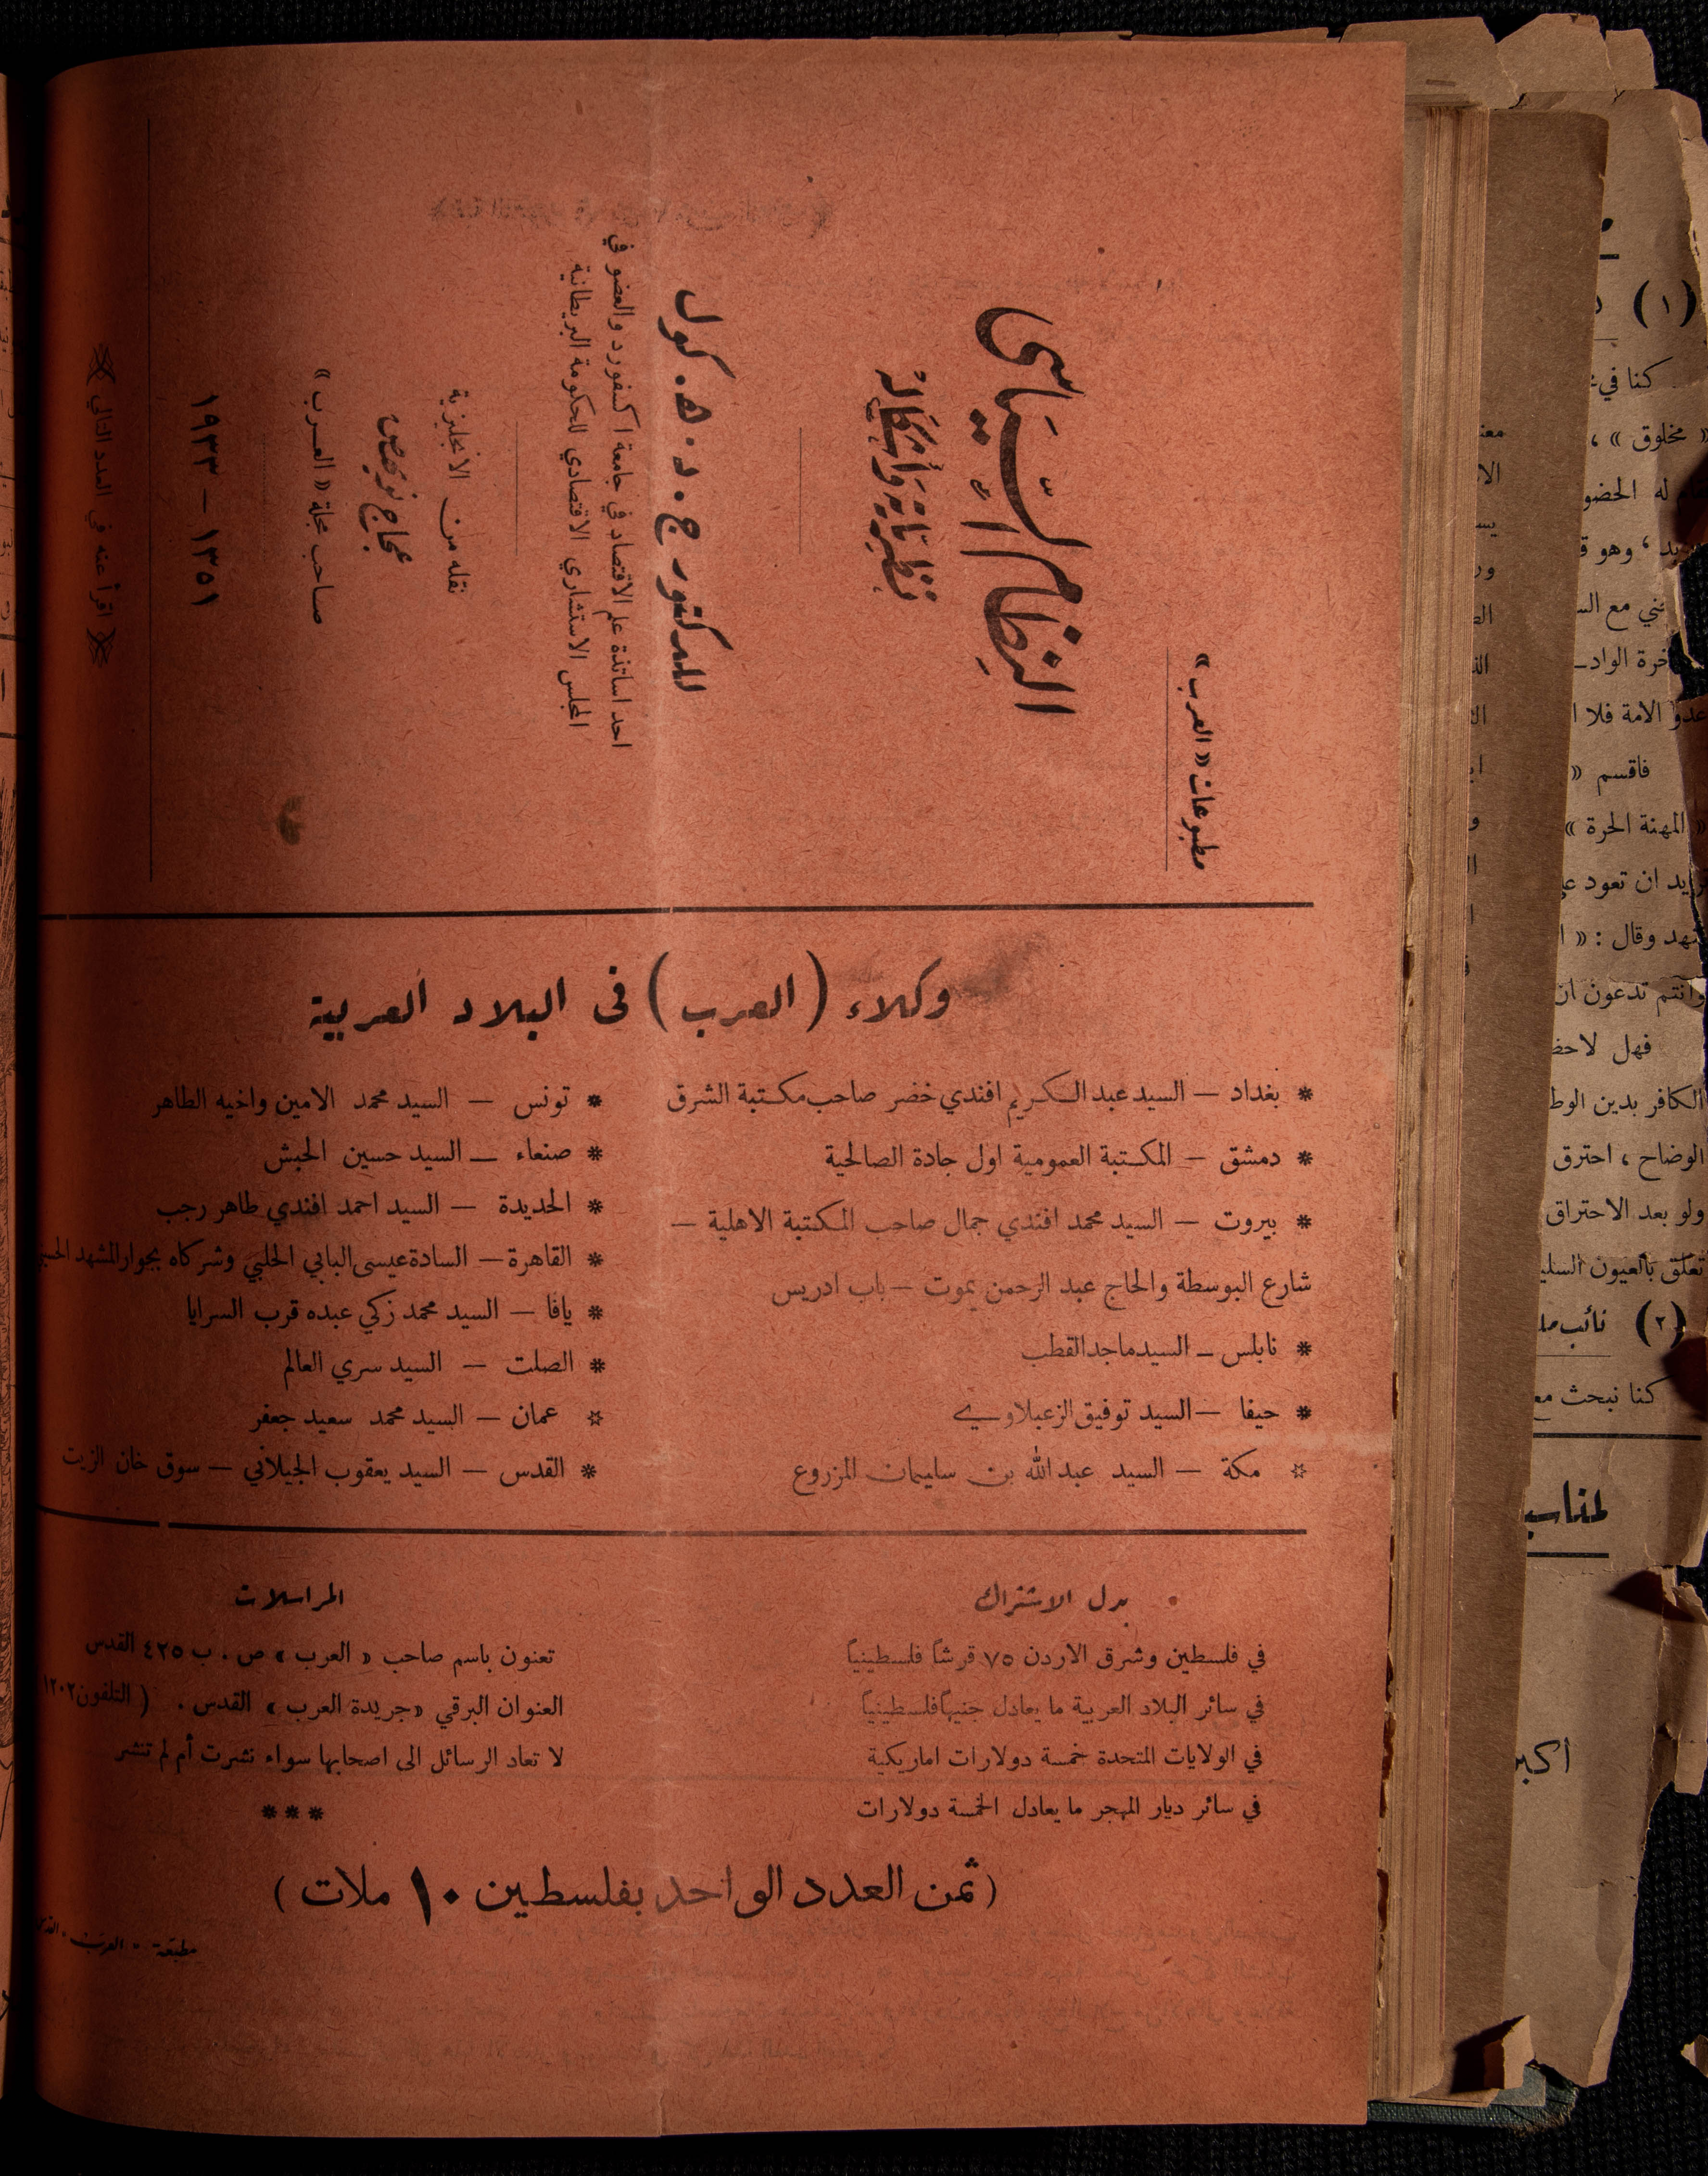 مطبوعات « العرب »
النظام السياسي
نظرياته وأشكاله
للدكتور ج. د. ه. كول
احد اساتذة علم الاقتصاد في جامعة اكسفورد والعضو في
المجلس الاستشاري الاقتصادي للحكومة البريطانية
نقله من الانجليزية
عجاج نويهض
صاحب مجلة « العرب »
١٣٥١ — ١٩٣٣
اقرأ عنه في العدد التالي
وكلاء ( العرب ) فى البلاد العربية
* بغداد — السيد عبد الكريم افندي خضر صاحب مكتبة الشرق
* دمشق — المكتبة العمومية اول جادة الصالحية
* بيروت — السيد محمد افندي جمال صاحب المكتبة الاهلية —
شارع البوسطة والحاج عبد الرحمن يموت — باب ادريس
* نابلس — السيد ماجد القطب
* حيفا — السيد توفيق الزعبلاوي
☆ مكة — السيد عبد الله بن سليمان المزروع
* تونس — السيد محمد الامين واخيه الطاهر
* صنعاء — السيد حسين الحبش
* الحديدة — السيد احمد افندي طاهر رجب
* القاهرة — السادة عيسى البابي الحلبي وشركاه بجوار المشهد
* يافا — السيد محمد زكي عبده قرب السرايا
* الصلت — السيد سري العالم
☆ عمان — السيد محمد سعيد جعفر
* القدس — السيد يعقوب الجيلاني — سوق خان الزيت
بدل الاشتراك
في فلسطين وشرق الاردن ٧٥ قرشاً فلسطينياً
في سائر البلاد العربية ما يعادل جنيهاً فلسطينياً
في الولايات المتحدة خمسة دولارات اماريكية
في سائر ديار المهجر ما يعادل الخمسة دولارات
المراسلات
تعنون باسم صاحب « العرب » ص . ب ٤٢٥ القدس
العنوان البرقي « جريدة العرب » القدس . ( التلفون ١٢٠٢
لا تعاد الرسائل الى اصحابها سواء نشرت أم لم تنشر
***
( ثمن العدد الواحد بفلسطين ١٠ ملات )
مطبعة - العرب -
(١)
كنا في
« مخلوق » ،
له الحضو
، وهو
مع
عدو الامة فلا ا
فاقسم «
« المهنة الحرة »
ان تعود
وقال : « ا
وانتم تدعون ان
فهل لاحظ
الكافر بدين
الوضاح ، احترق
ولو بعد الاحتراق
تعلق بالعيون
(٢) نائب
كنا نبحث
لمناسب
أكبر